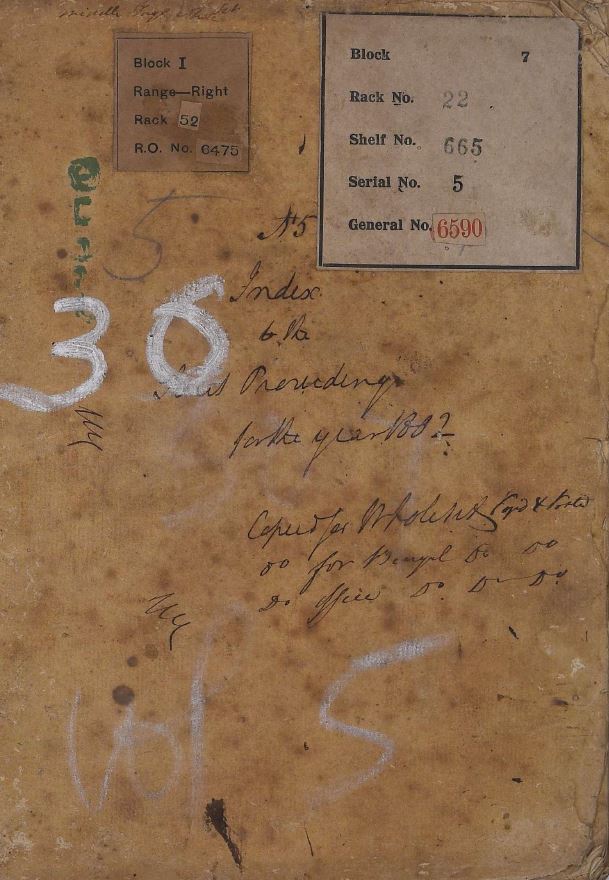 Block I
Range—Right
Rack 52
R.O. No. 6475
Block 7
Rack No. 22
Shelf No. 665
Serial No. 5
General No. 6590
5
No 5
Index
to the
Proceedings
for the year 1802
36
Copied for
Do for Bengal Do Do
Do office Do Do Do
Vol 5